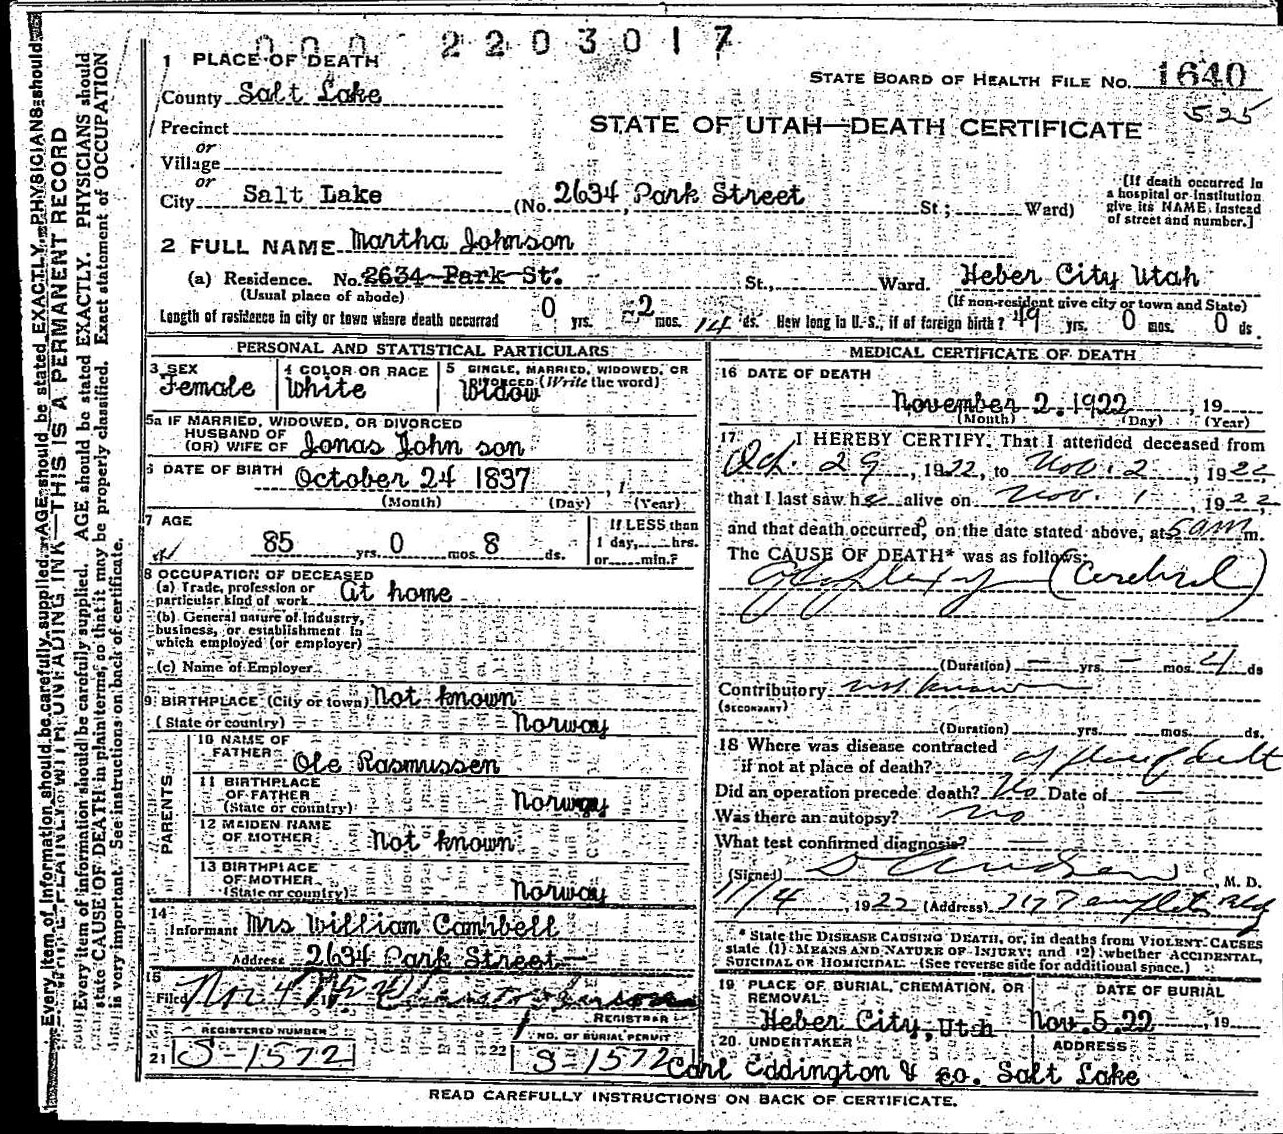 000 2203017
1 PLACE OF DEATH
STATE BOARD OF HEALTH FILE NO. 1640
County Salt Lake
525
Precinct
STATE OF UTAH—DEATH CERTIFICATE
or
Village
or
City Salt Lake (No. 2634 Park Street St.; Ward)
[If death occurred in a hospital or institution give its NAME instead of street and number.]
2 FULL NAME Martha Johnson
(a) Residence. No. 2634 Park St. St., Ward. Heber City Utah
(Usual place of abode) (If non-resident give city or town and State)
Length of residence in city or town where death occurred 0 yrs. 2 mos. 14 ds. How long in U.S., if of foreign birth? 49 yrs. 0 mos. 0 ds.
PERSONAL AND STATISTICAL PARTICULARS
3 SEX Female
4 COLOR OR RACE White
5 SINGLE, MARRIED, WIDOWED, OR DIVORCED (Write the word) Widow
5a IF MARRIED, WIDOWED, OR DIVORCED
HUSBAND OF
(OR) WIFE OF Jonas John son
6 DATE OF BIRTH October 24 1837, 1
(Month) (Day) (Year)
7 AGE
85 yrs. 0 mos. 8 ds.
If LESS than
1 day, hrs.
or min.?
8 OCCUPATION OF DECEASED
(a) Trade, profession or
particular kind of work At home
(b) General nature of Industry,
business, or establishment in
which employed (or employer)
(c) Name of Employer
9 BIRTHPLACE (City or town) Not known
(State or country) Norway
PARENTS
10 NAME OF
FATHER Ole Rasmussen
11 BIRTHPLACE
OF FATHER
(State or country) Norway
12 MAIDEN NAME
OF MOTHER Not known
13 BIRTHPLACE
OF MOTHER
(State or country) Norway
14
Informant Mrs William Cambell
Address 2634 Park Street
15
Filed Nov 4
REGISTRAR
REGISTERED NUMBER
21 S-1572
NO. OF BURIAL PERMIT
22 S-1572
MEDICAL CERTIFICATE OF DEATH
16 DATE OF DEATH
November 2. 1922, 19
(Month) (Day) (Year)
17 I HEREBY CERTIFY, That I attended deceased from
Oct. 29, 1922, to Nov. 2, 1922
that I last saw her alive on Nov. 1, 1922,
and that death occurred, on the date stated above, at 5 am m.
The CAUSE OF DEATH* was as follows:
Apoplexy (Cerebral)
(Duration) — yrs. — mos. 4 ds
Contributory not known
(SECONDARY)
(Duration) yrs. mos. ds.
18 Where was disease contracted
if not at place of death? at place of death
Did an operation precede death? No Date of —
Was there an autopsy? No
What test confirmed diagnosis? —
(Signed) , M. D.
11/4, 1922 (Address) 317 Templeton Bldg
* State the DISEASE CAUSING DEATH, or, in deaths from VIOLENT CAUSES
state (1) MEANS AND NATURE OF INJURY; and (2) whether ACCIDENTAL,
SUICIDAL OR HOMICIDAL. (See reverse side for additional space.)
19 PLACE OF BURIAL, CREMATION, OR REMOVAL
Heber City, Utah
DATE OF BURIAL
Nov. 5. 22, 19
20 UNDERTAKER ADDRESS
Carl Eddington & co. Salt Lake
READ CAREFULLY INSTRUCTIONS ON BACK OF CERTIFICATE.
WRITE PLAINLY WITH UNFADING INK—THIS IS A PERMANENT RECORD
Every item of information should be carefully supplied. AGE should be stated EXACTLY. PHYSICIANS should
state CAUSE OF DEATH in plain terms, so that it may be properly classified. Exact statement of OCCUPATION
is very important. See instructions on back of certificate.